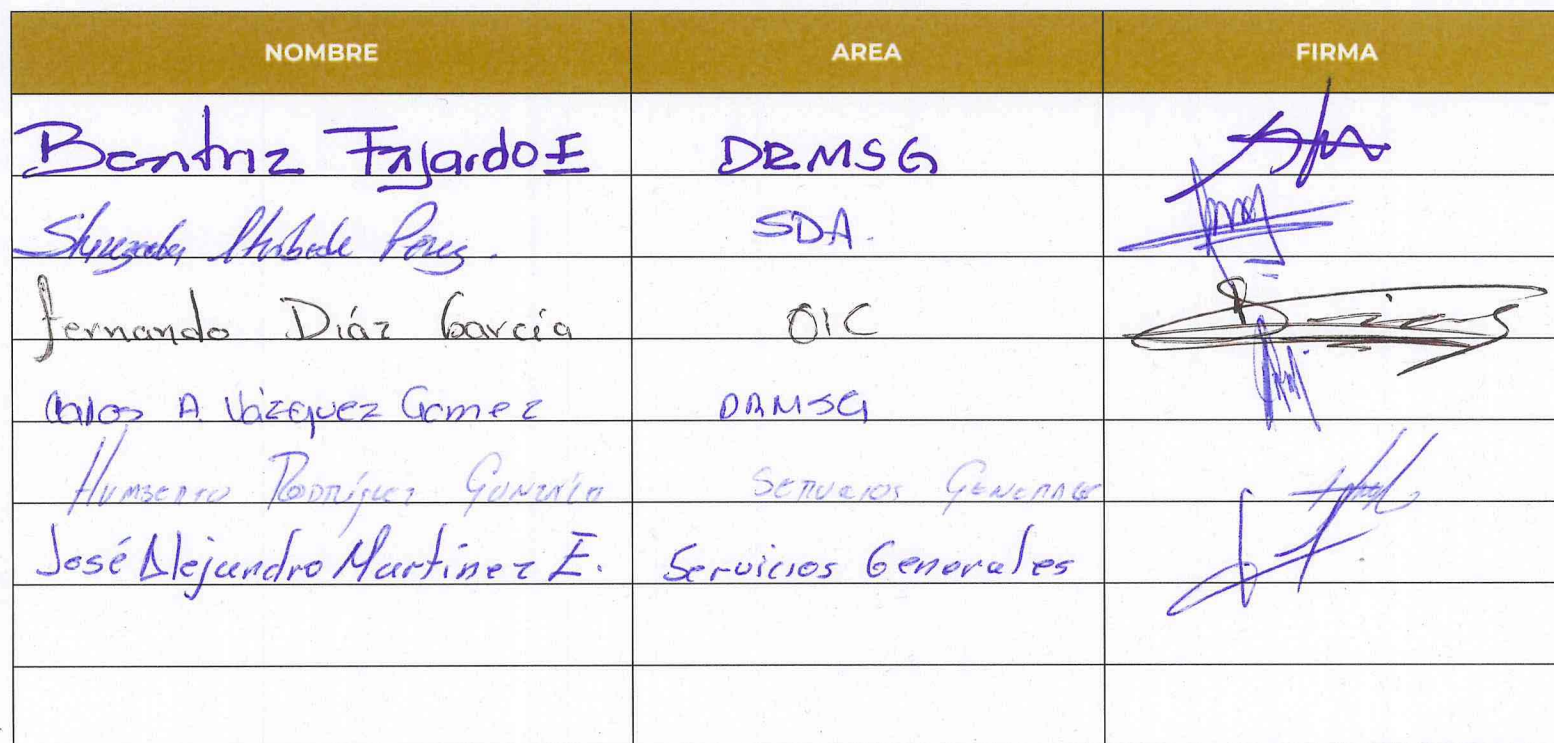 NOMBRE AREA FIRMA
Beatriz Fajardo E DRMSG
Pérez. SDA.
Fernando Díaz García OIC
Carlos A. Vázquez Gamez DRMSG
Humberto Rodríguez González Servicios Generales
José Alejandro Martínez E. Servicios Generales